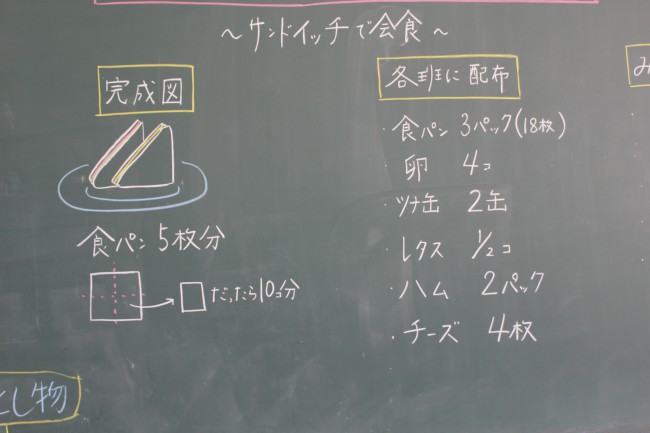 ～サンドイッチで会食～
完成図
食パン 5枚分
だったら10コ分
各班に配布
・食パン 3パック(18枚)
・卵 4コ
・ツナ缶 2缶
・レタス 1/2コ
・ハム 2パック
・チーズ 4枚
とし物
み